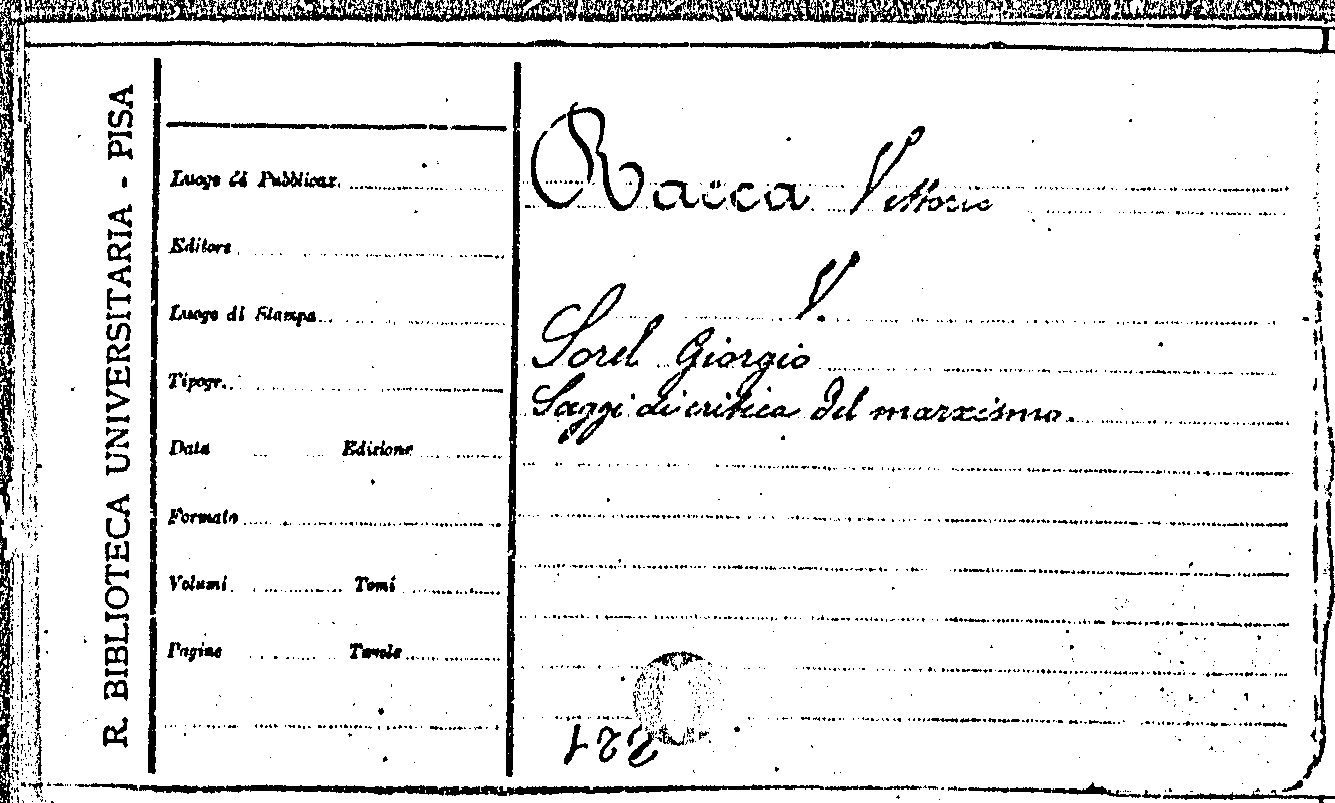 R. BIBLIOTECA UNIVERSITARIA - PISA
Luogo di Pubblicaz.
Editore
Luogo di Stampa
Tipogr.
Data Edizione
Formato
Volumi Tomi
Pagine Tavole
Racca Vittorio
V.
Sorel Giorgio
Saggi di critica del marxismo.